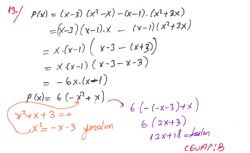 13.) P(x) = (x-3)(x²-x)-(x-1).(x²+3x)
= (x-3)(x-1).x - (x-1)(x²+3x)
= x.(x-1) (x-3-(x+3))
= x.(x-1)(x-3-x-3)
= -6x.(x-1)
P(x) = 6(-x²+x)
x²+x+3=0
x²=-x-3 yazalım
6(-(-x-3)+x)
6(2x+3)
12x+18
CEVAP: B